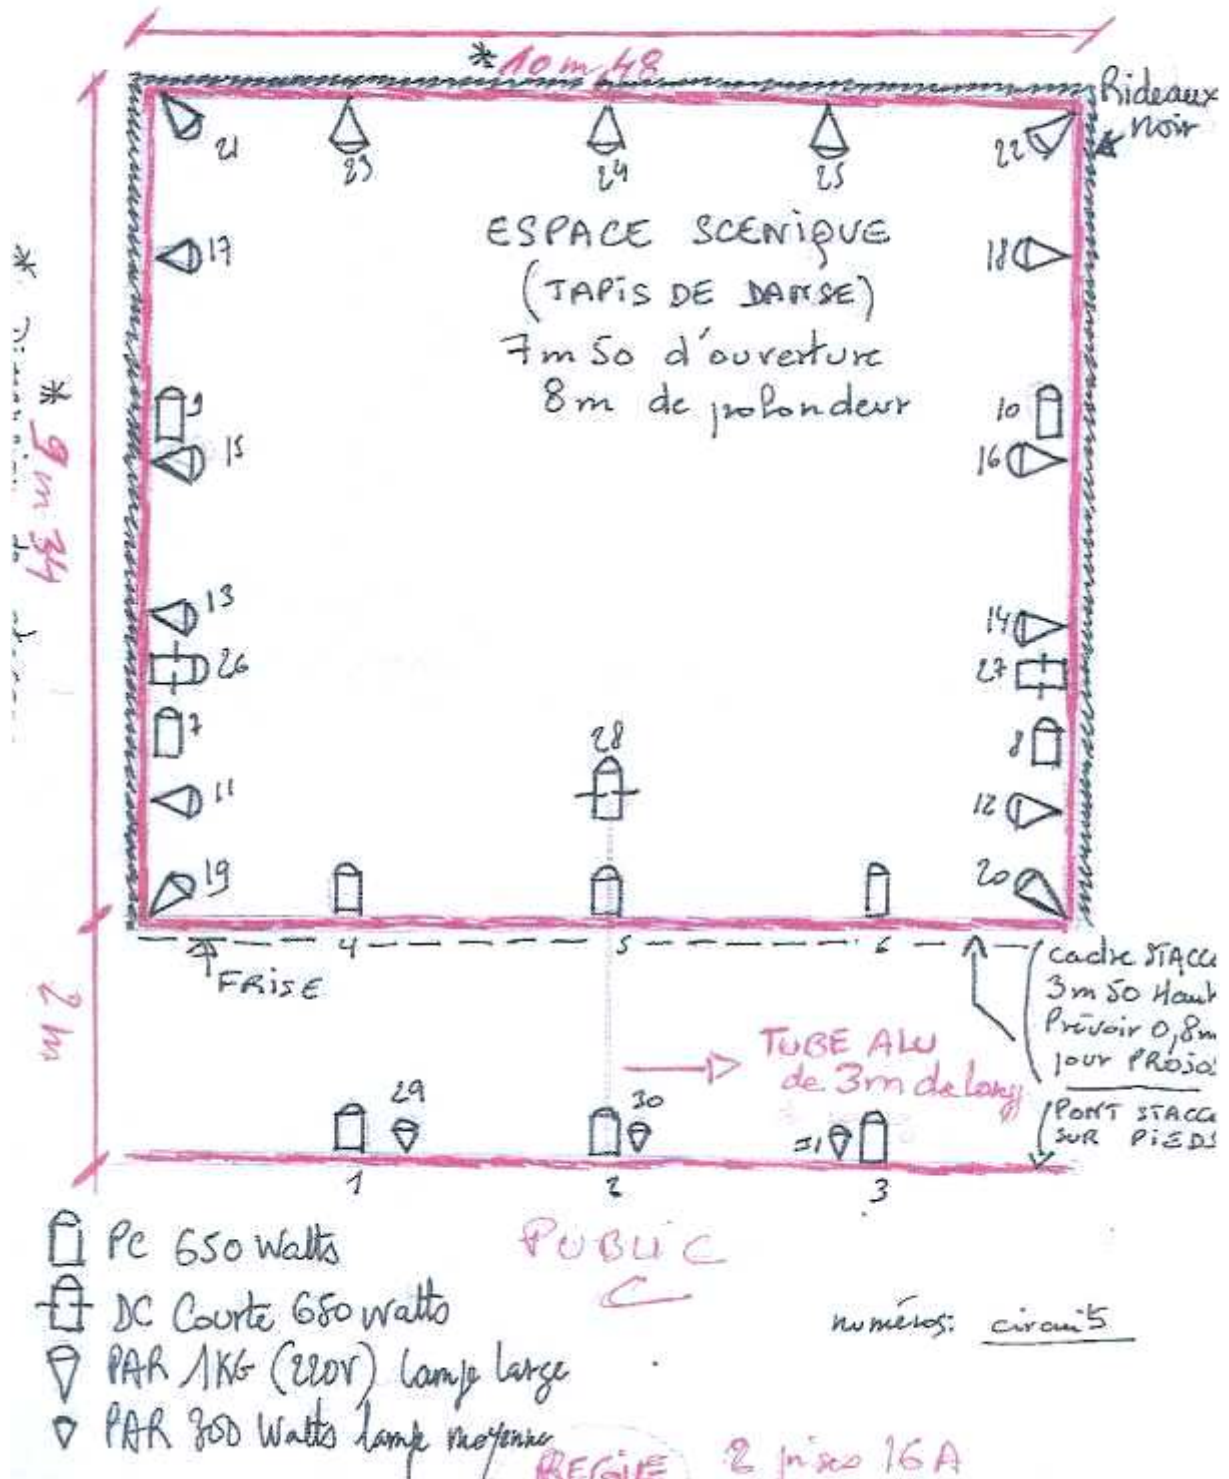 * 10m,48
Rideaux
noir
21
23
24
25
22
ESPACE SCENIQUE
(TAPIS DE DANSE)
7m50 d'ouverture
8m de profondeur
17
18
*
* 9m34
9
10
15
16
13
14
26
27
7
28
8
11
12
19
20
4
5
6
FRISE
cadre STACC
3m50 Haut
Prévoir 0,8m
pour PROJO
2m
TUBE ALU
de 3m de long
PONT STACC
SUR PIEDS
29
30
31
1
2
3
PC 650 Watts
PUBLIC
DC Courte 650 watts
numéros: circuits
PAR 1KG (220V) lampe large
PAR 300 Watts lampe moyenne
REGIE 2 prises 16A